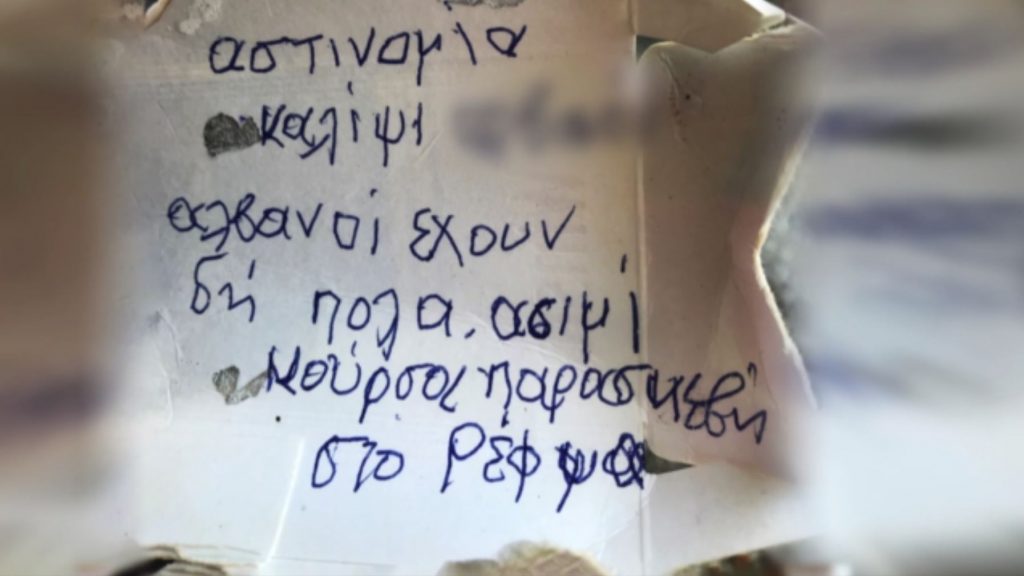 αστινομια
καλιψι
αλβανοί έχουν
δή πολα. ασιμί
κούρσα παρασκεβή
στο Ρέφμα